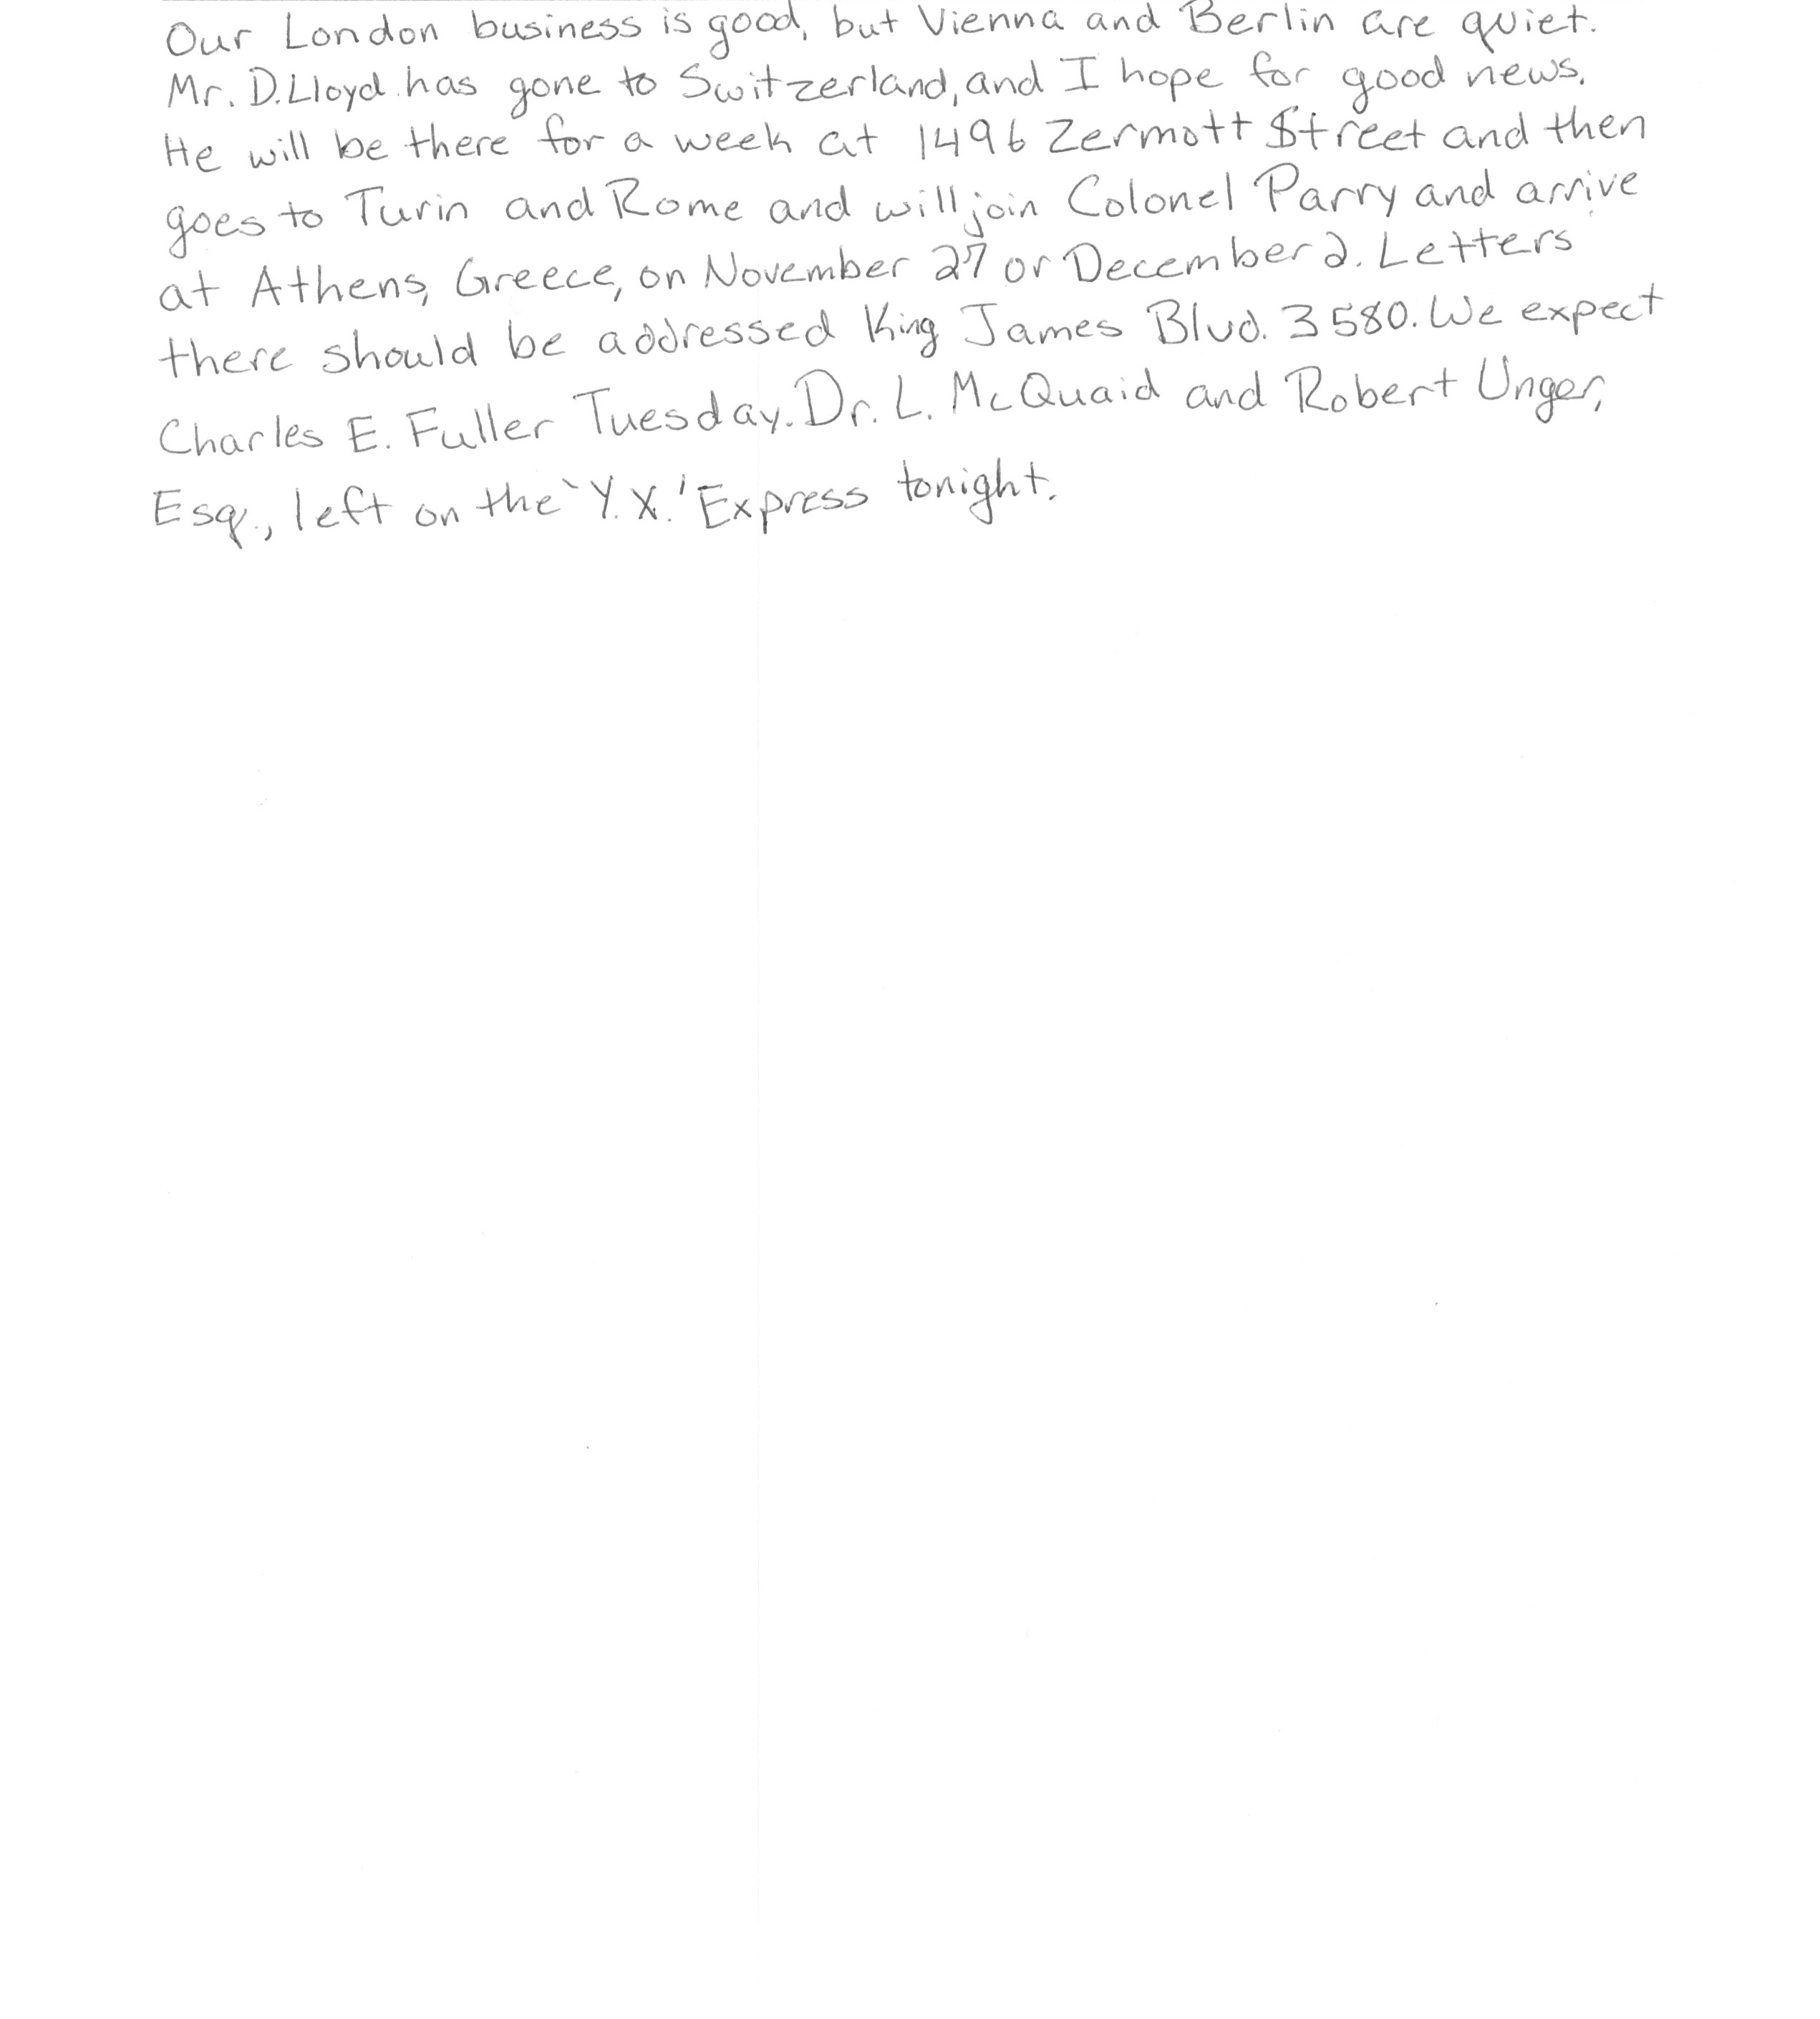 Our London business is good, but Vienna and Berlin are quiet.
Mr. D. Lloyd has gone to Switzerland, and I hope for good news.
He will be there for a week at 1496 Zermott Street and then
goes to Turin and Rome and will join Colonel Parry and arrive
at Athens, Greece, on November 27 or December 2. Letters
there should be addressed King James Blvd. 3580. We expect
Charles E. Fuller Tuesday. Dr. L. McQuaid and Robert Unger,
Esq., left on the 'Y.X.' Express tonight.